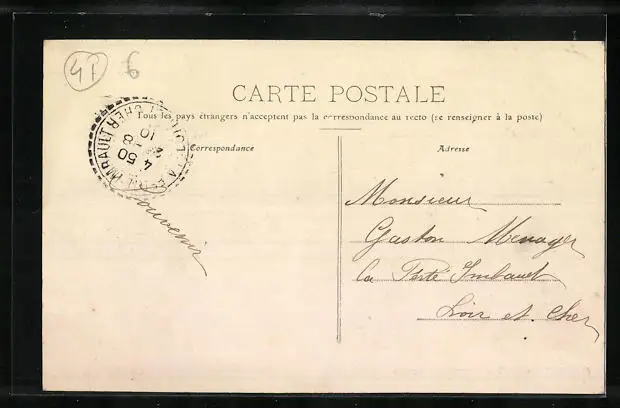 41
6
CARTE POSTALE
Tous les pays étrangers n'acceptent pas la correspondance au recto (se renseigner à la poste)
Correspondance
Adresse
4 50
28
10
LOIR-ET-CHER
Souvenir
Monsieur
Gaston Menager
la Ferté Imbault
Loir et Cher